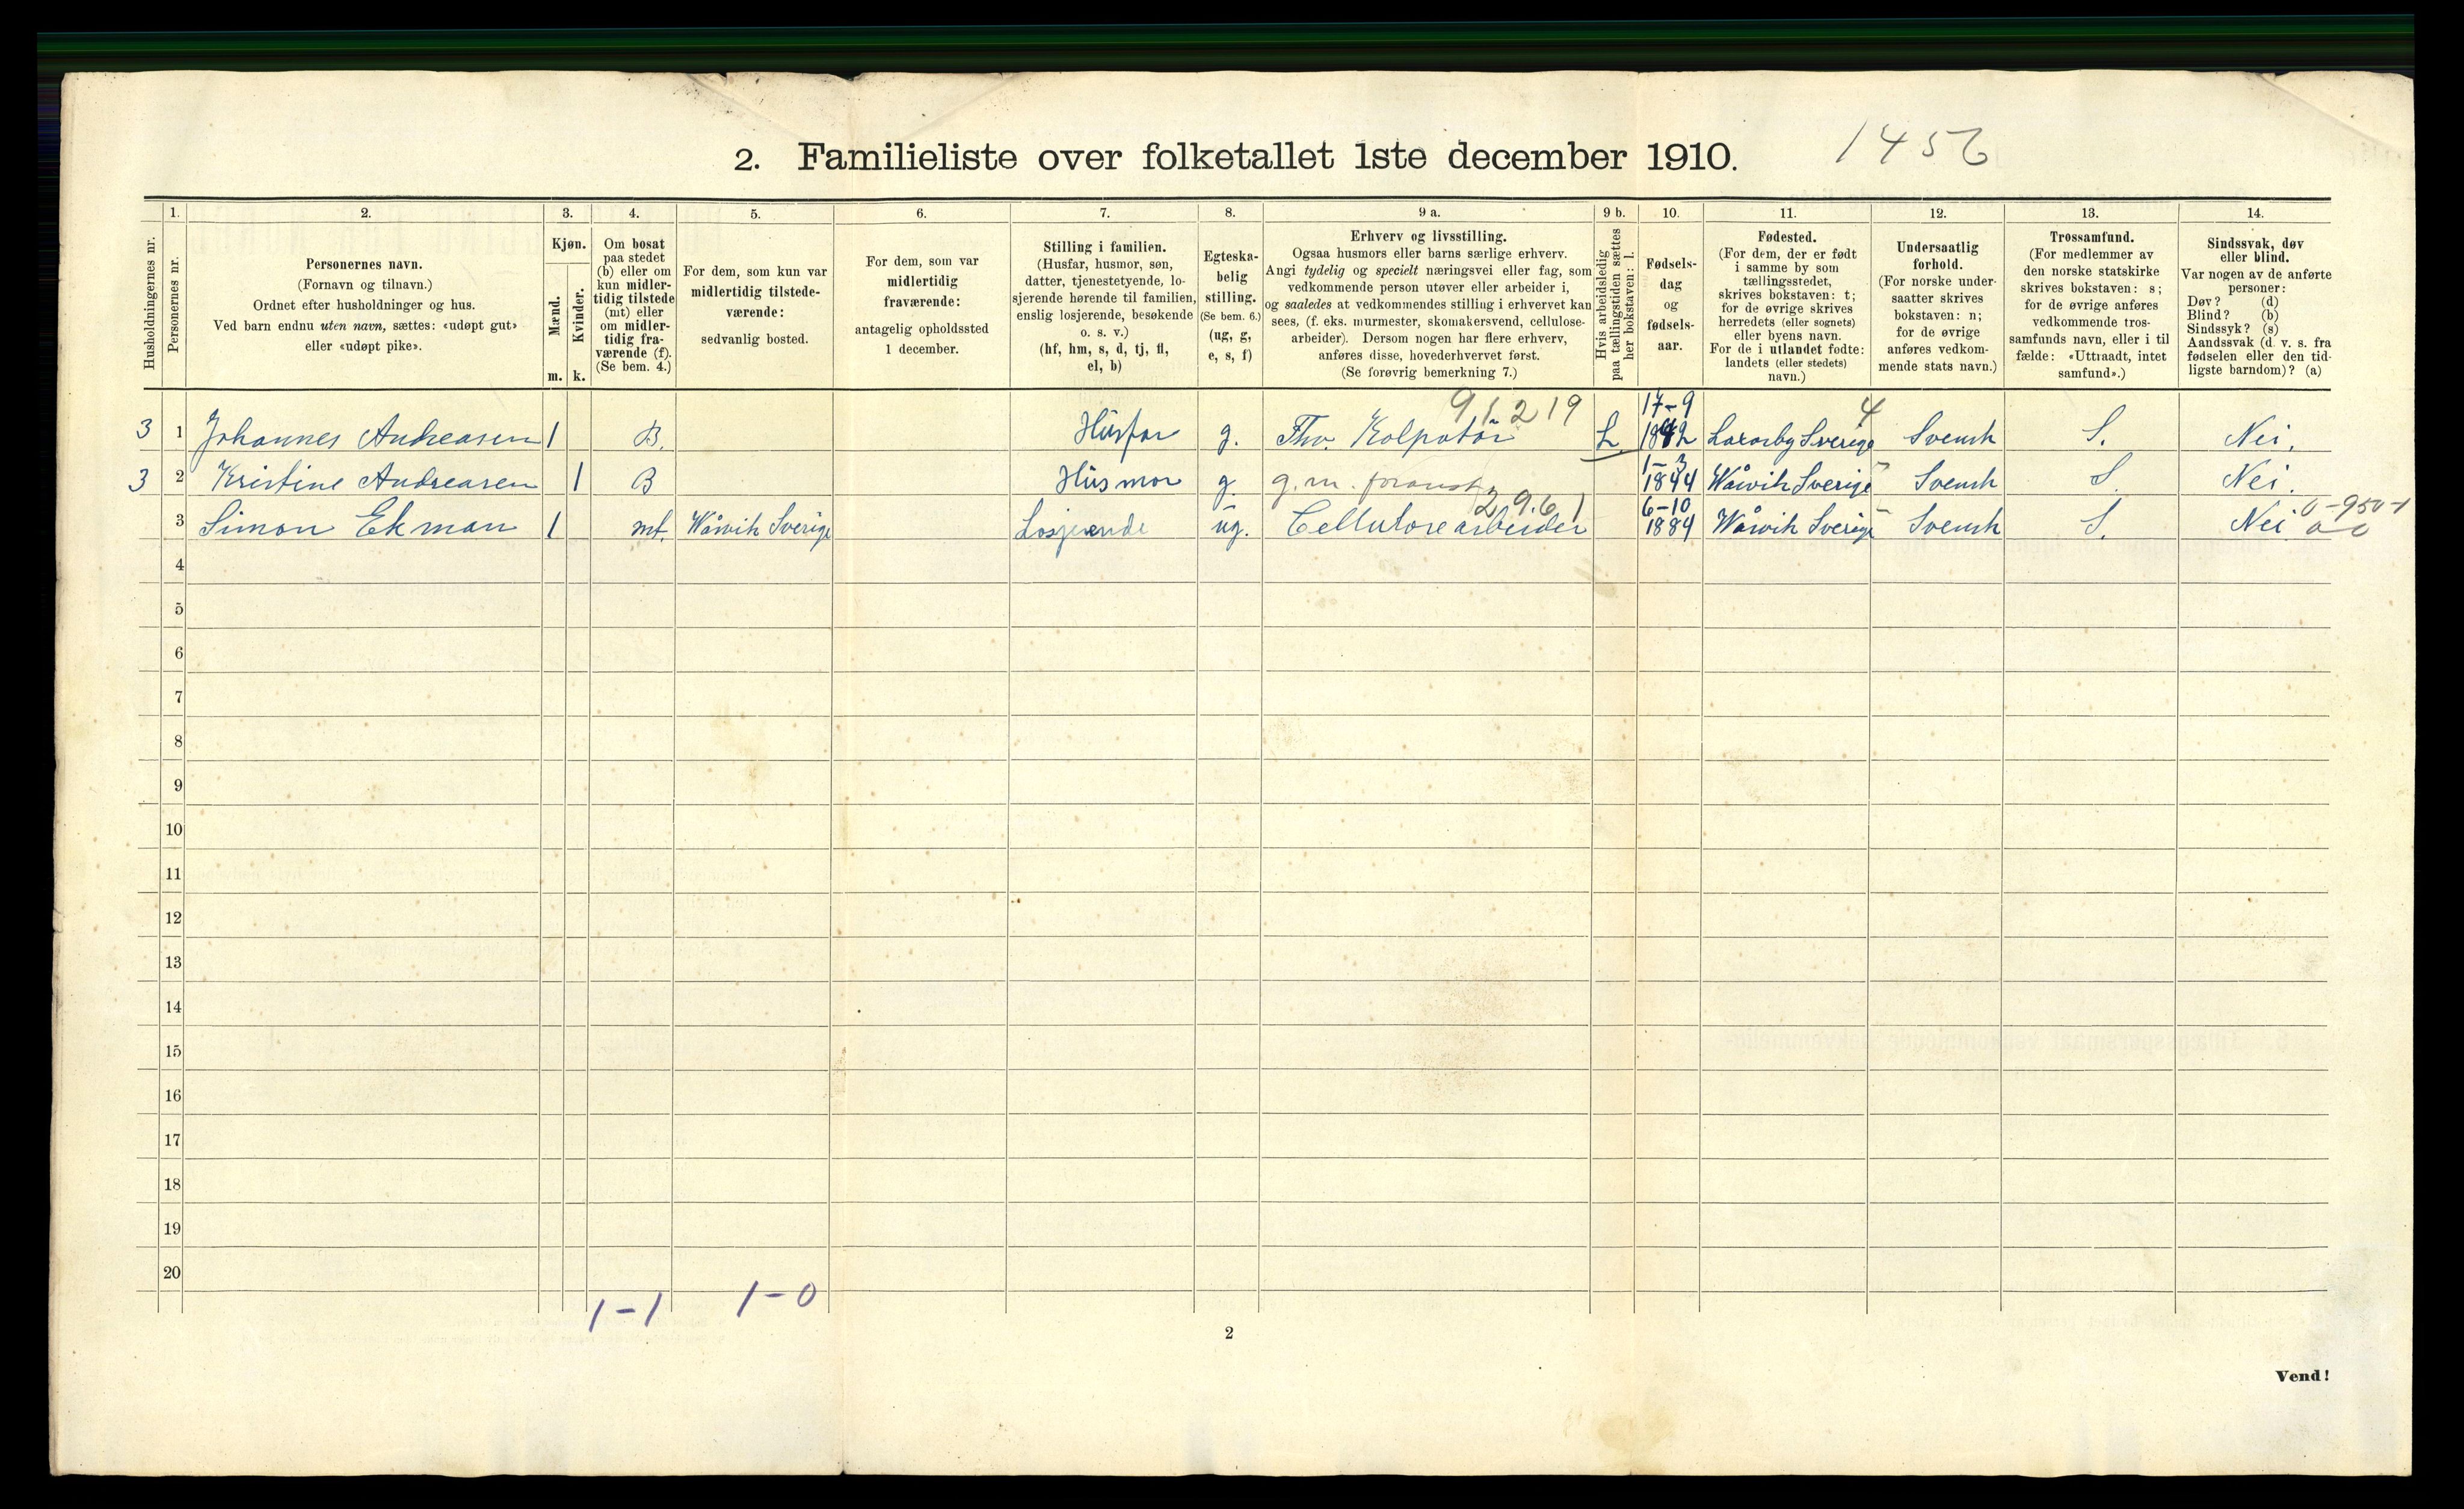 2. Familieliste over folketallet 1ste december 1910.
1456
Husholdningernes nr.
1.
Personernes nr.
2.
Personernes navn.
(Fornavn og tilnavn.)
Ordnet efter husholdninger og hus.
Ved barn endnu uten navn, sættes: «udøpt gut»
eller «udøpt pike».
3.
Kjøn.
Mænd.
Kvinder.
m.
k.
4.
Om bosat
paa stedet
(b) eller om
kun midler-
tidig tilstede
(mt) eller
om midler-
tidig fra-
værende (f).
(Se bem. 4.)
5.
For dem, som kun var
midlertidig tilstede-
værende:
sedvanlig bosted.
6.
For dem, som var
midlertidig
fraværende:
antagelig opholdssted
1 december.
7.
Stilling i familien.
(Husfar, husmor, søn,
datter, tjenestetyende, lo-
sjerende hørende til familien,
enslig losjerende, besøkende
o. s. v.)
(hf, hm, s, d, tj, fl,
el, b)
8.
Egteska-
belig
stilling.
(Se bem. 6.)
(ug, g,
e, s, f)
9 a.
Erhverv og livsstilling.
Ogsaa husmors eller barns særlige erhverv.
Angi tydelig og specielt næringsvei eller fag, som
vedkommende person utøver eller arbeider i,
og saaledes at vedkommendes stilling i erhvervet kan
sees, (f. eks. murmester, skomakersvend, cellulose-
arbeider). Dersom nogen har flere erhverv,
anføres disse, hovederhvervet først.
(Se forøvrig bemerkning 7.)
9 b.
Hvis arbeidsledig
paa tællingstiden sættes
her bokstaven: l.
10.
Fødsels-
dag
og
fødsels-
aar.
11.
Fødested.
(For dem, der er født
i samme by som
tællingsstedet,
skrives bokstaven: t;
for de øvrige skrives
herredets (eller sognets)
eller byens navn.
For de i utlandet fødte:
landets (eller stedets)
navn.)
12.
Undersaatlig
forhold.
(For norske under-
saatter skrives
bokstaven: n;
for de øvrige
anføres vedkom-
mende stats navn.)
13.
Trossamfund.
(For medlemmer av
den norske statskirke
skrives bokstaven: s;
for de øvrige anføres
vedkommende tros-
samfunds navn, eller i til
fælde: «Uttraadt, intet
samfund».)
14.
Sindssvak, døv
eller blind.
Var nogen av de anførte
personer:
Døv? (d)
Blind? (b)
Sindssyk? (s)
Aandssvak (d. v. s. fra
fødselen eller den tid-
ligste barndom)? (a)
91219 17-9 4
3 1 Johannes Andreasen 1 B. Husfar g. Fhv. Kolpotør L. 1842 Laxarby Sverige Svensk S. Nei.
1-3
3 2 Kristine Andreasen 1 B Husmor g. g. m. foranst. 1844 Wårvik Sverige Svensk S. Nei.
29.61 6-10 0-950-1
3 Simon Ekman 1 mt. Wårvik Sverige Losjerende ug. Cellulosearbeider 1884 Wårvik Sverige Svensk S. Nei.
4
5
6
7
8
9
10
11
12
13
14
15
16
17
18
19
20
1-1 1-0
2
Vend!